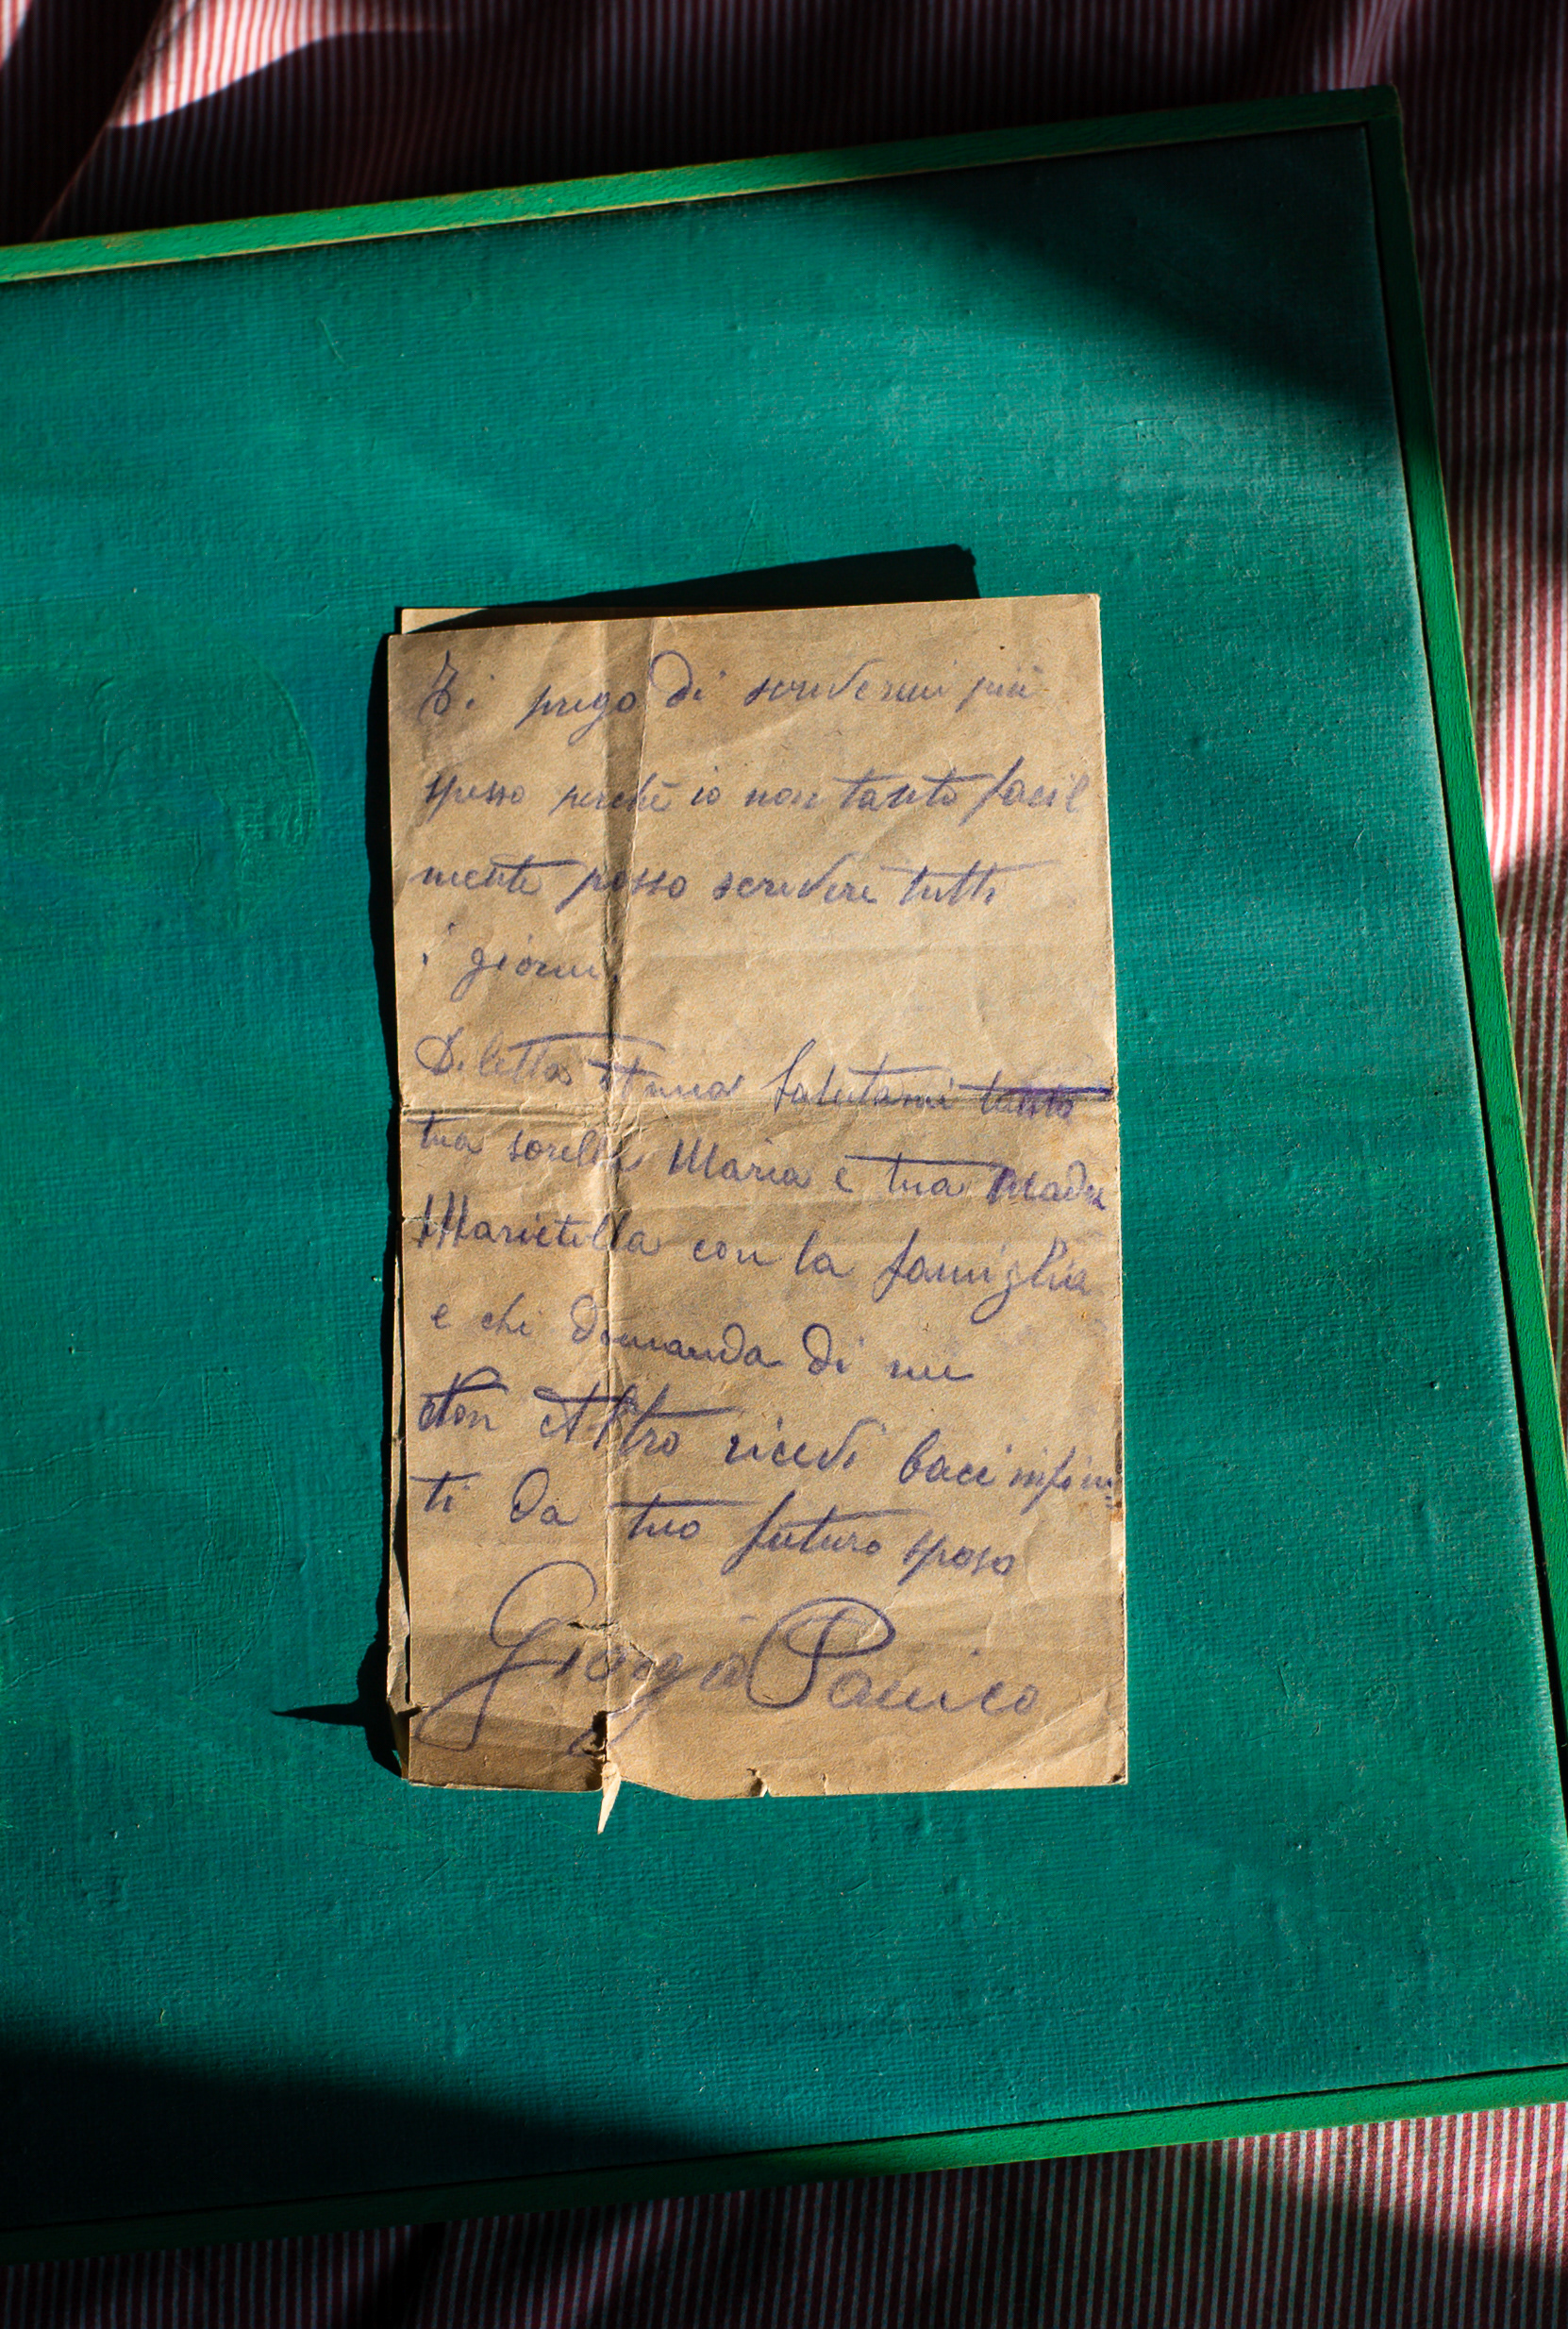 Ti prego di scrivermi più
spesso perché io non tanto facil
mente posso scrivere tutti
i giorni,
Diletta Anna Salutami tanto
tua sorella Maria e tua Madre
Marietella con la famiglia
e chi domanda di me
Non Altro ricevi baci infini=
ti da tuo futuro sposo
Giorgio Panico